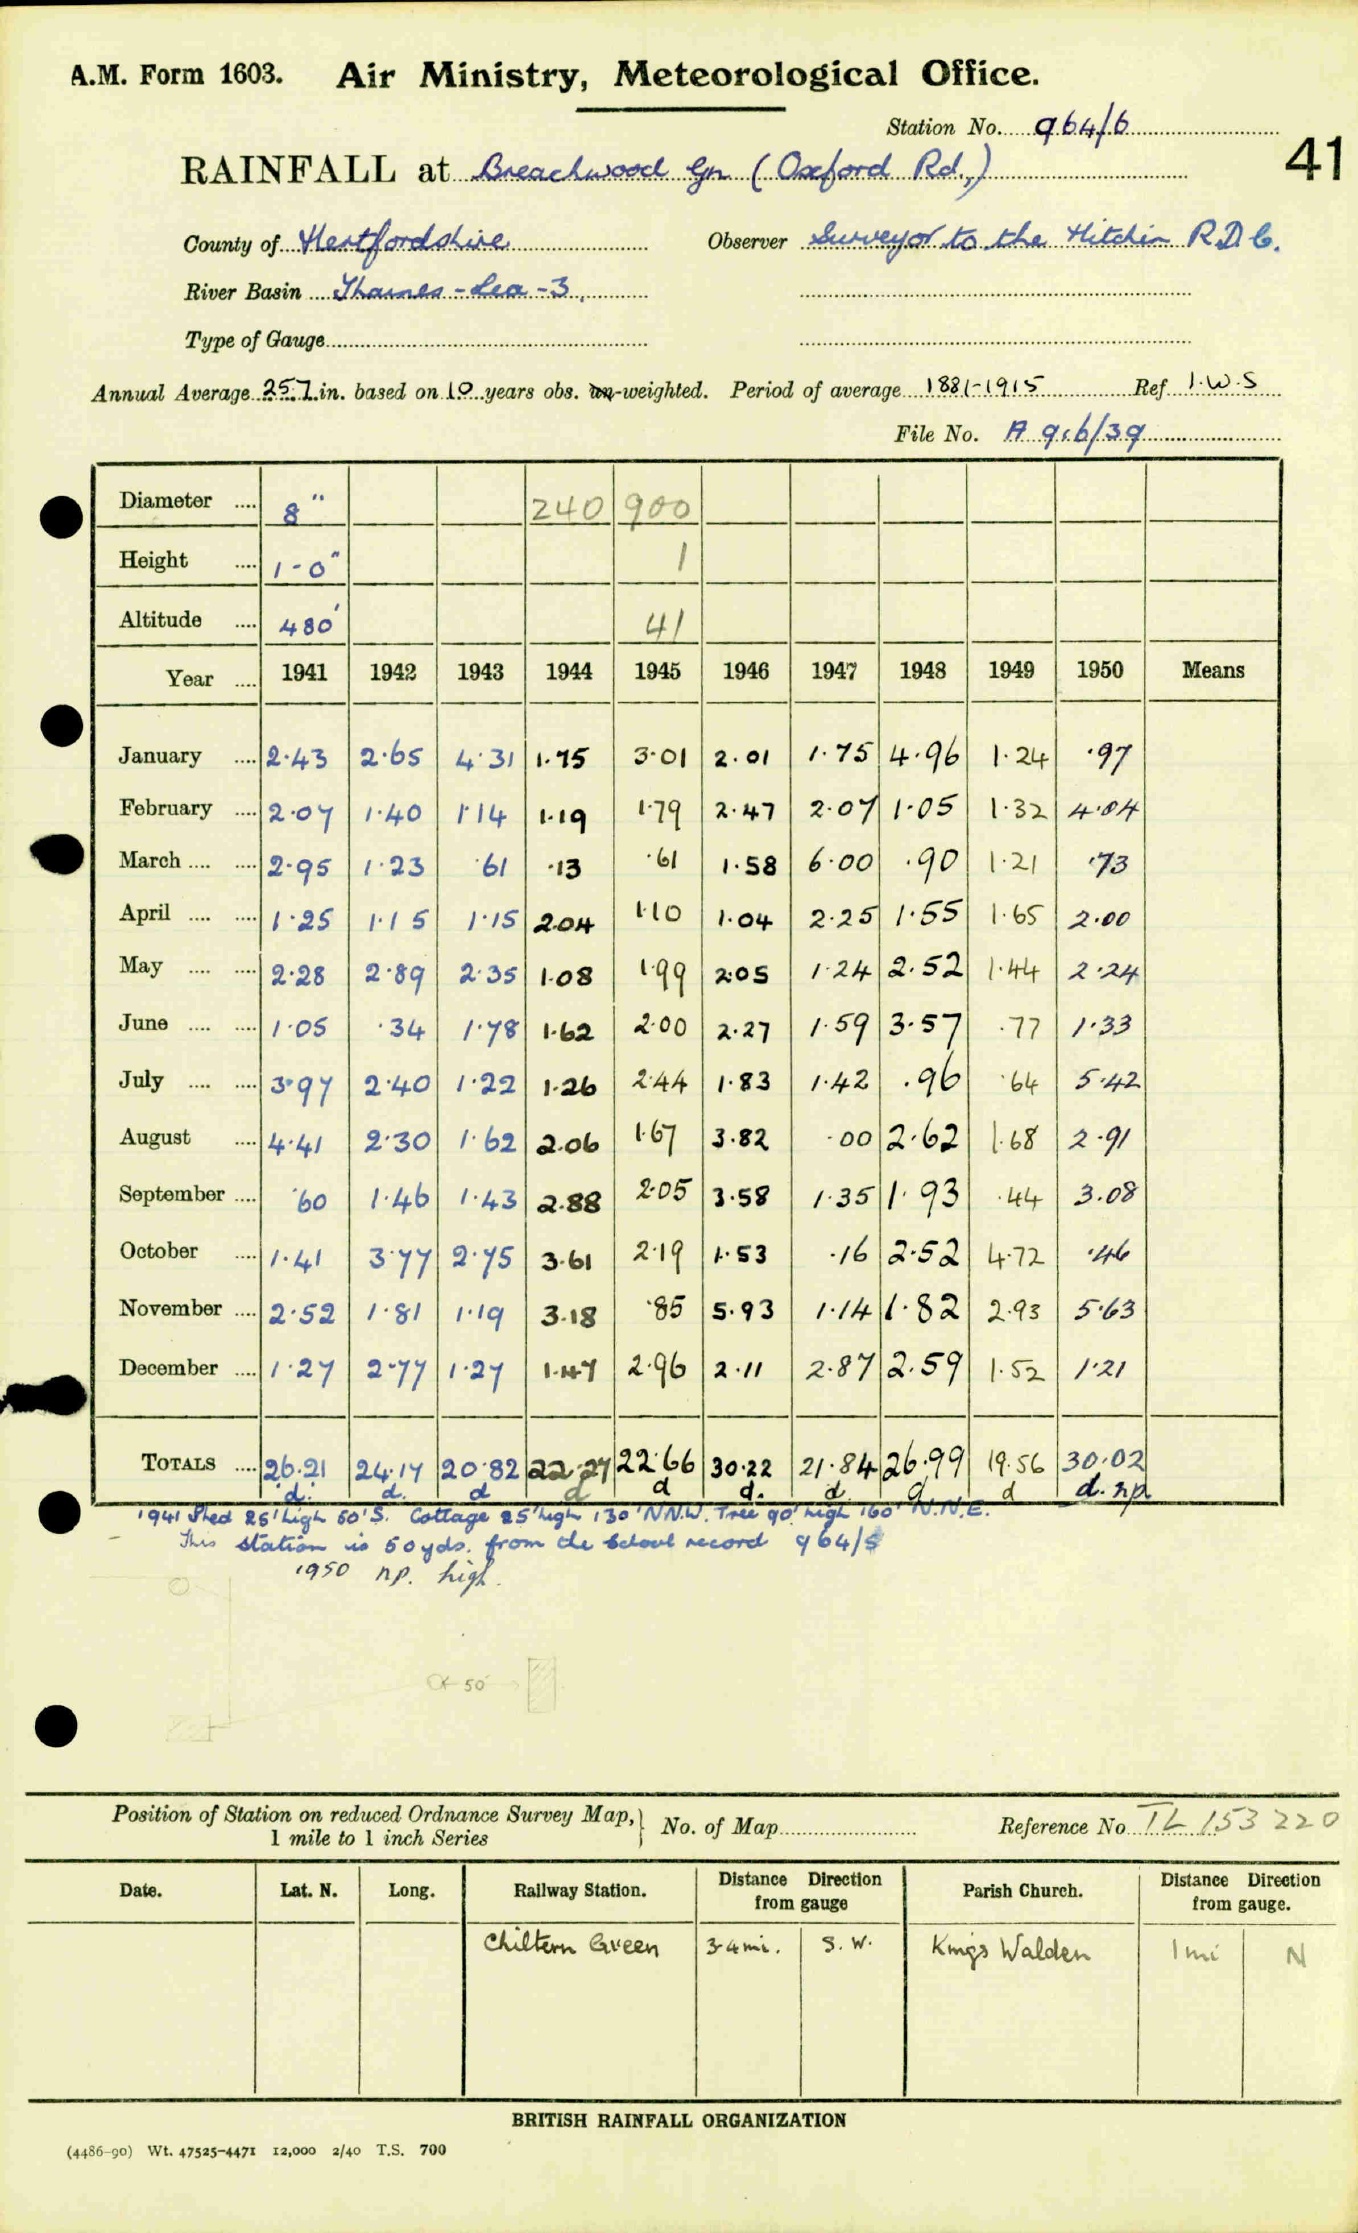 A.M. Form 1603. Air Ministry, Meteorological Office.
Station No. 964/6
41
RAINFALL at Breachwood Gn (Oxford Rd.,)
County of Hertfordshire Observer Surveyor to the Hitchin R.D.C.
River Basin Thames-Lea-3.
Type of Gauge
Annual Average 25.7 in. based on 10 years obs. un-weighted. Period of average 1881-1915 Ref I.W.S
File No. A 916/39
Diameter .... 8" 240 900
Height .... 1-0" 1
Altitude .... 480' 41
Year .... 1941 1942 1943 1944 1945 1946 1947 1948 1949 1950 Means
January .... 2.43 2.65 4.31 1.75 3.01 2.01 1.75 4.96 1.24 .97
February .... 2.07 1.40 1.14 1.19 1.79 2.47 2.07 1.05 1.32 4.04
March .... .... 2.95 1.23 .61 .13 .61 1.58 6.00 .90 1.21 .73
April .... .... 1.25 1.15 1.15 2.04 1.10 1.04 2.25 1.55 1.65 2.00
May .... .... 2.28 2.89 2.35 1.08 1.99 2.05 1.24 2.52 1.44 2.24
June .... .... 1.05 .34 1.78 1.62 2.00 2.27 1.59 3.57 .77 1.33
July .... .... 3.97 2.40 1.22 1.26 2.44 1.83 1.42 .96 .64 5.42
August .... 4.41 2.30 1.62 2.06 1.67 3.82 .00 2.62 1.68 2.91
September .... .60 1.46 1.43 2.88 2.05 3.58 1.35 1.93 .44 3.08
October .... 1.41 3.77 2.75 3.61 2.19 1.53 .16 2.52 4.72 .46
November .... 2.52 1.81 1.19 3.18 .85 5.93 1.14 1.82 2.93 5.63
December .... 1.27 2.77 1.27 1.47 2.96 2.11 2.87 2.59 1.52 1.21
TOTALS .... 26.21 24.17 20.82 22.27 22.66 30.22 21.84 26.99 19.56 30.02
d. d. d d d d. d. d d d. np
1941 Shed 25' high 50' S. Cottage 25' high 130' NNW. Tree 90' high 160' N.N.E.
This station is 50 yds. from the School record 964/5
1950 np. high.
50'
Position of Station on reduced Ordnance Survey Map,
1 mile to 1 inch Series
No. of Map Reference No. TL 153 220
Date. Lat. N. Long. Railway Station. Distance Direction from gauge Parish Church. Distance Direction from gauge.
Chiltern Green 3-4mi. S.W. Kings Walden 1 mi N
BRITISH RAINFALL ORGANIZATION
(4486-90) Wt. 47525-4471 12,000 2/40 T.S. 700